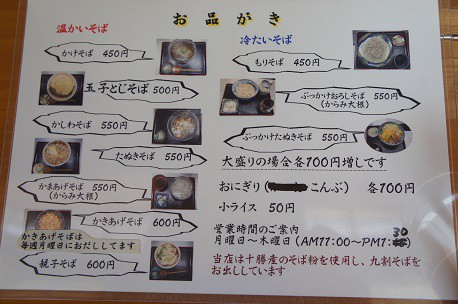 お品がき
温かいそば
かけそば 450円
玉子とじそば 500円
かしわそば 550円
たぬきそば 550円
かまあげそば 550円
(からみ大根)
かきあげそば 600円
かきあげそばは
毎週月曜日におだししてます
親子そば 600円
冷たいそば
もりそば 450円
ぶっかけおろしそば 550円
(からみ大根)
ぶっかけたぬきそば 550円
大盛りの場合各100円増しです
おにぎり( こんぶ) 各100円
小ライス 50円
営業時間のご案内
月曜日~木曜日(AM11:00~PM1:30
当店は十勝産のそば粉を使用し、九割そばを
お出ししています